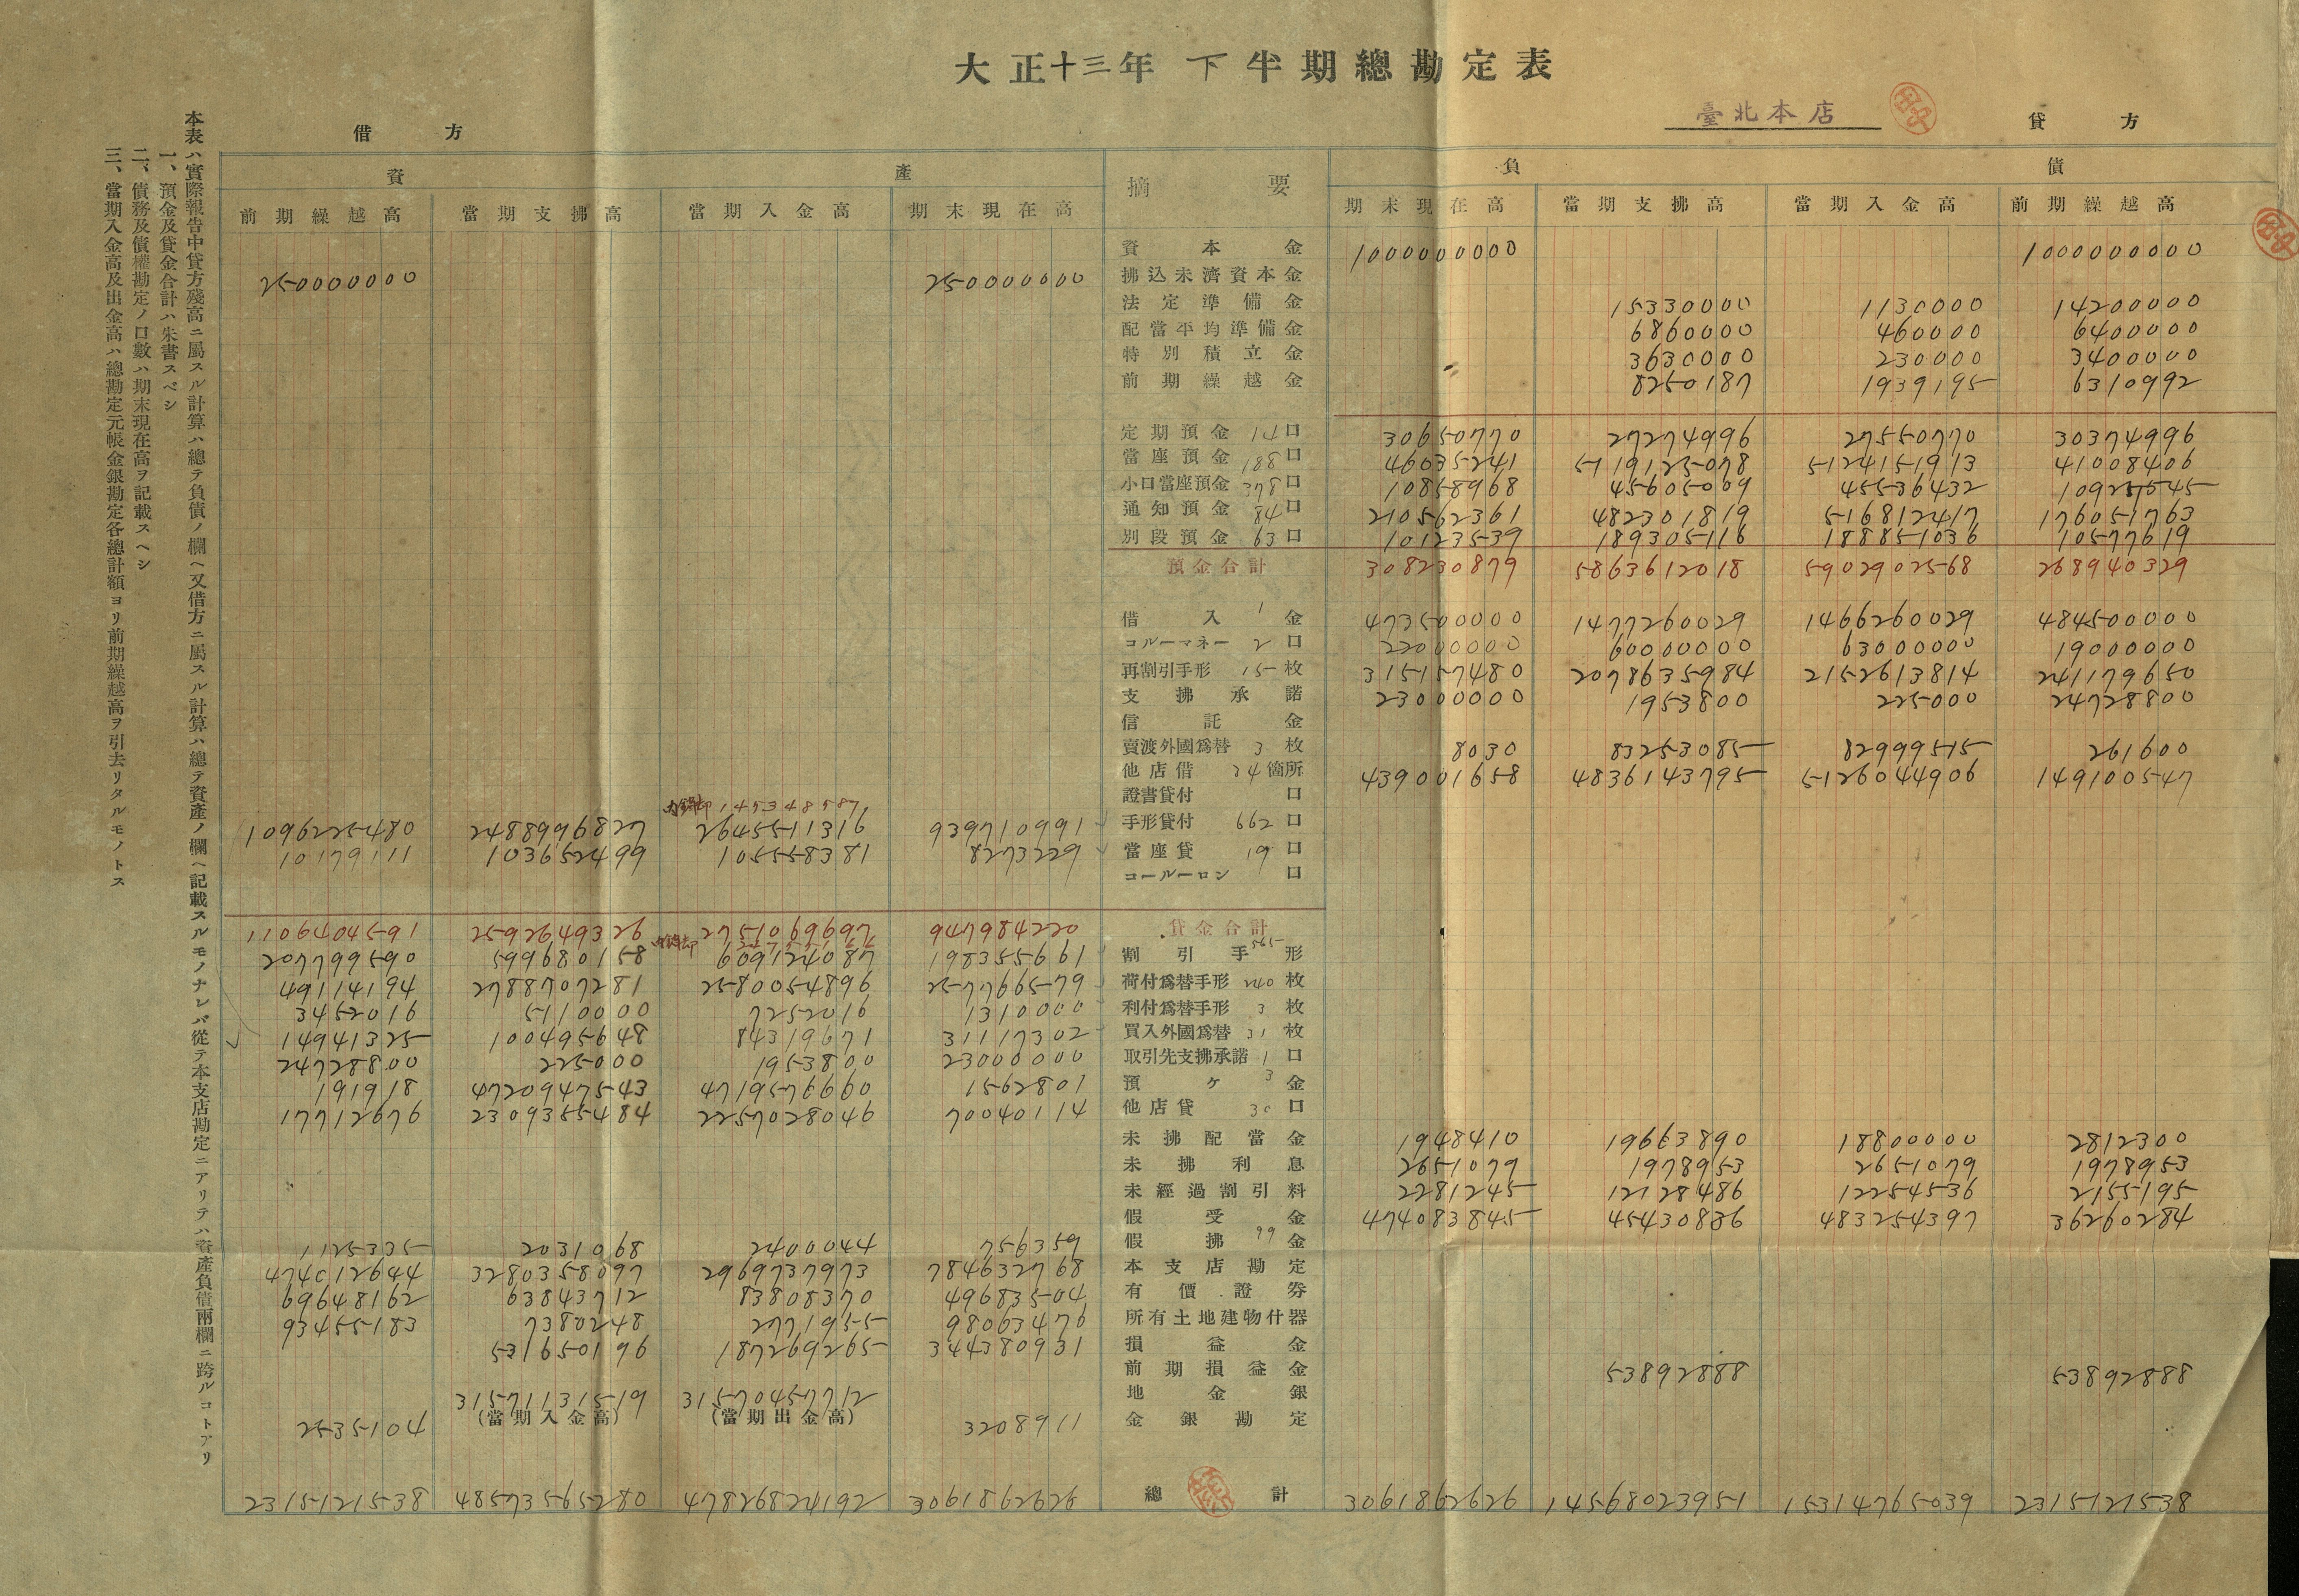 大正十三年 下半期總勘定表
臺北本店
借方 貸方
資產 摘要 負債
前期繰越高 當期支拂高 當期入金高 期末現在高 期末現在高 當期支拂高 當期入金高 前期繰越高
資本金 1000000000 1000000000
250000000 250000000 拂込未濟資本金
法定準備金 15330000 1130000 14200000
配當平均準備金 6860000 460000 6400000
特別積立金 3630000 230000 3400000
前期繰越金 8250187 1939195 6310992
定期預金 14口 30650770 27274996 27550770 30374996
當座預金 188口 46035241 5119125078 5124151913 41008406
小口當座預金 378口 10858968 45605009 45536432
通知預金 84口 210562361 482301819 516812417 176051763
別段預金 63口 10123539 189305116 188851036 10577619
預金合計 308230879 5863612018 5902902568 268940329
借入金 1 473500000 1477260029 1466260029 484500000
コルーマネー 2口 22000000 60000000 63000000 19000000
再割引手形 15枚 315157480 2078635984 2152613814 241179650
支拂承諾 23000000 1953800 225000 24728800
信託金
賣渡外國爲替 3枚 8030 83253085 82999515 261600
他店借 24箇所 439001658 4836143795 5126044906 149100547
證書貸付 口
145348587
1096225480 2488996827 2645511316 939710991 手形貸付 662口
10179111 103652499 105558381 8273229 當座貸 19口
コールーロン 口
1106404591 2592649326 2751069697 947984220 貸金合計
207796590 599680158 609124087 198355661 割引手形 565
49114194 2788707281 2580054896 257766579 荷付爲替手形 240枚
3452016 5110000 7252016 1310000 利付爲替手形 3枚
14941325 100495648 84319671 31117302 買入外國爲替 31枚
24728800 225000 1953800 23000000 取引先支拂承諾 1口
191918 4720947543 4719576660 1562801 預ケ金 3
17712676 2309355484 2257028046 70040114 他店貸 30口
未拂配當金 1948410 19663890 18800000 2812300
未拂利息 2651079 1978953 2651079 1978953
未經過割引料 2281245 12128486 12254536 2155195
假受金 474083845 45430836 483254397 36260284
1125335 2031068 2400044 756359 假拂金 99
474012644 3280358097 2969737973 784632768 本支店勘定
69648162 63843712 83808370 49683504 有價證券
93455183 7380248 2771955 98063476 所有土地建物什器
531650196 187269265 344380931 損益金
前期損益金 53892888 53892888
31571131519 31570457712 地金銀
2535104 (當期入金高) (當期出金高) 3208911 金銀勘定
2315121538 48573565280 47826824192 3061862626 總計 3061862626 14568023951 15314765039 2315121538
本表ハ實際報告中貸方殘高ニ屬スル計算ハ總テ負債ノ欄ヘ又借方ニ屬スル計算ハ總テ資產ノ欄ヘ記載スルモノナレバ從テ本支店勘定ニアリテハ資產負債兩欄ニ跨ルコトアリ
一、預金及貸金合計ハ朱書スベシ
二、債務及債權勘定ノ口數ハ期末現在高ヲ記載スヘシ
三、當期入金高及出金高ハ總勘定元帳金銀勘定各總計額ヨリ前期繰越高ヲ引去リタルモノトス